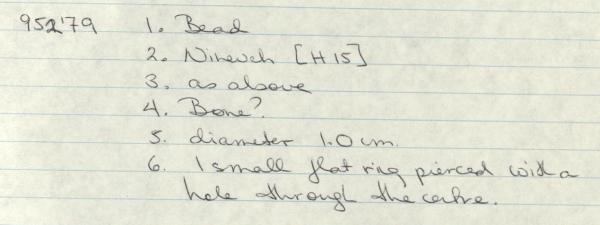 952'79 1. Bead
2. Nineveh [H15]
3. as above
4. Bone?
5. diameter 1.0cm.
6. 1 small flat ring pierced with a
hole through the centre.